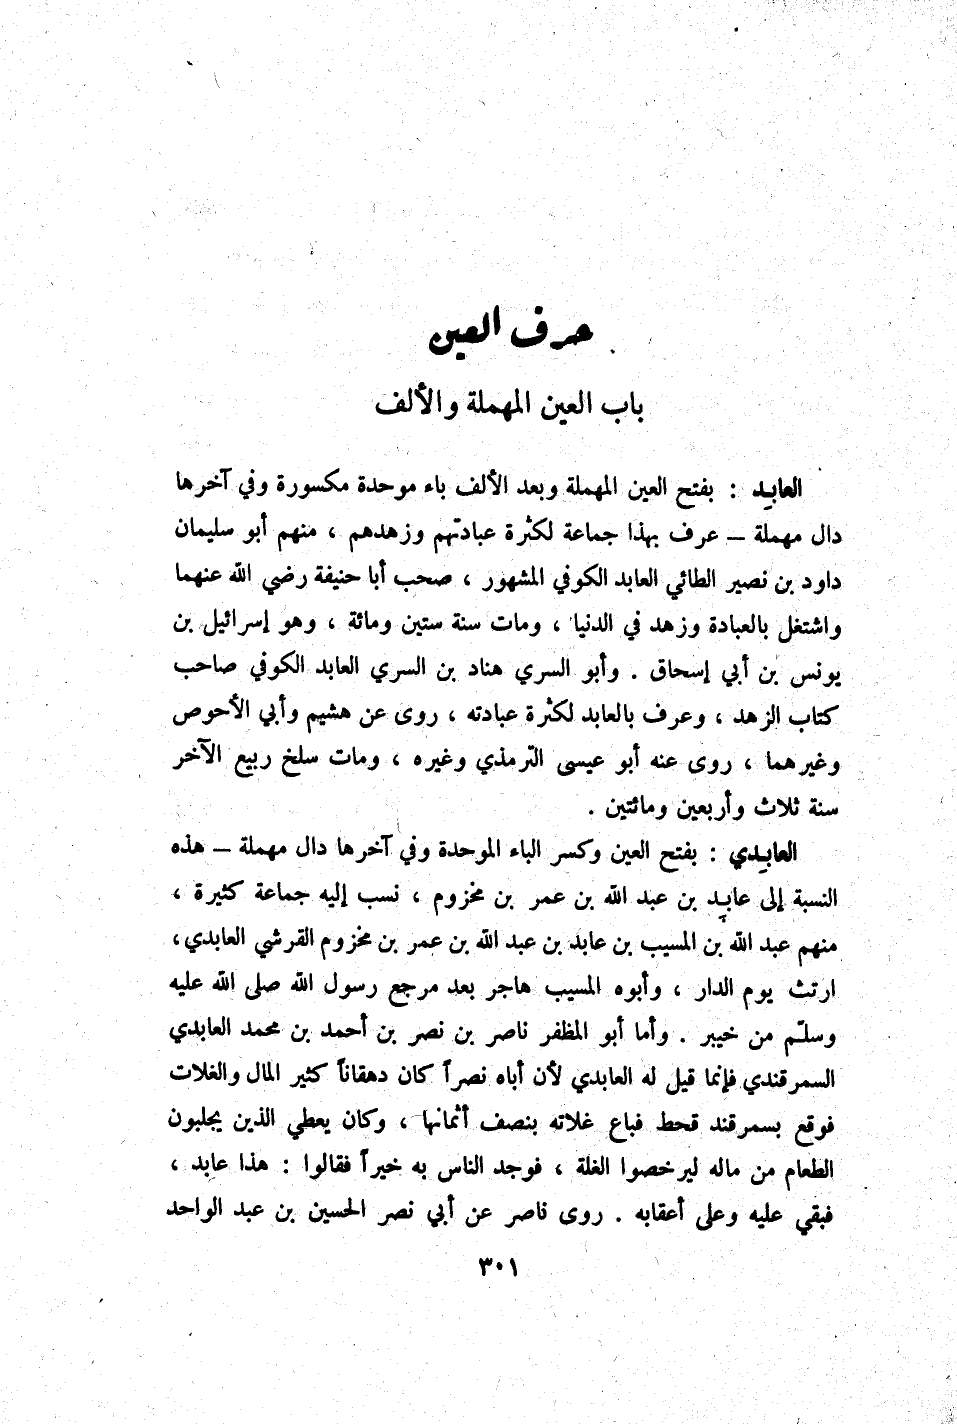 حرف العين
باب العين المهملة والألف
العابد : بفتح العين المهملة وبعد الألف باء موحدة مكسورة وفي آخرها
دال مهملة – عرف بهذا جماعة لكثرة عبادتهم وزهدهم ، منهم أبو سليمان
داود بن نصير الطائي العابد الكوفي المشهور ، صحب أبا حنيفة رضي الله عنهما
واشتغل بالعبادة وزهد في الدنيا ، ومات سنة ستين ومائة ، وهو إسرائيل بن
يونس بن أبي إسحاق . وأبو السري هناد بن السري العابد الكوفي صاحب
كتاب الزهد ، وعرف بالعابد لكثرة عبادته ، روى عن هشيم وأبي الأحوص
وغيرهما ، روى عنه أبو عيسى الترمذي وغيره ، ومات سلخ ربيع الآخر
سنة ثلاث وأربعين ومائتين .
العابدي : بفتح العين وكسر الباء الموحدة وفي آخرها دال مهملة – هذه
النسبة إلى عابِد بن عبد الله بن عمر بن مخزوم ، نسب إليه جماعة كثيرة ،
منهم عبد الله بن المسيب بن عابد بن عبد الله بن عمر بن مخزوم القرشي العابدي،
ارتث يوم الدار ، وأبوه المسيب هاجر بعد مرجع رسول الله صلى الله عليه
وسلّم من خيبر . وأما أبو المظفر ناصر بن نصر بن أحمد بن محمد العابدي
السمرقندي فإنما قيل له العابدي لأن أباه نصراً كان دهقاناً كثير المال والغلات
فوقع بسمرقند قحط فباع غلاته بنصف أثمانها ، وكان يعطي الذين يجلبون
الطعام من ماله ليرخصوا الغلة ، فوجد الناس به خيراً فقالوا : هذا عابد ،
فبقي عليه وعلى أعقابه . روى ناصر عن أبي نصر الحسين بن عبد الواحد
٣٠١